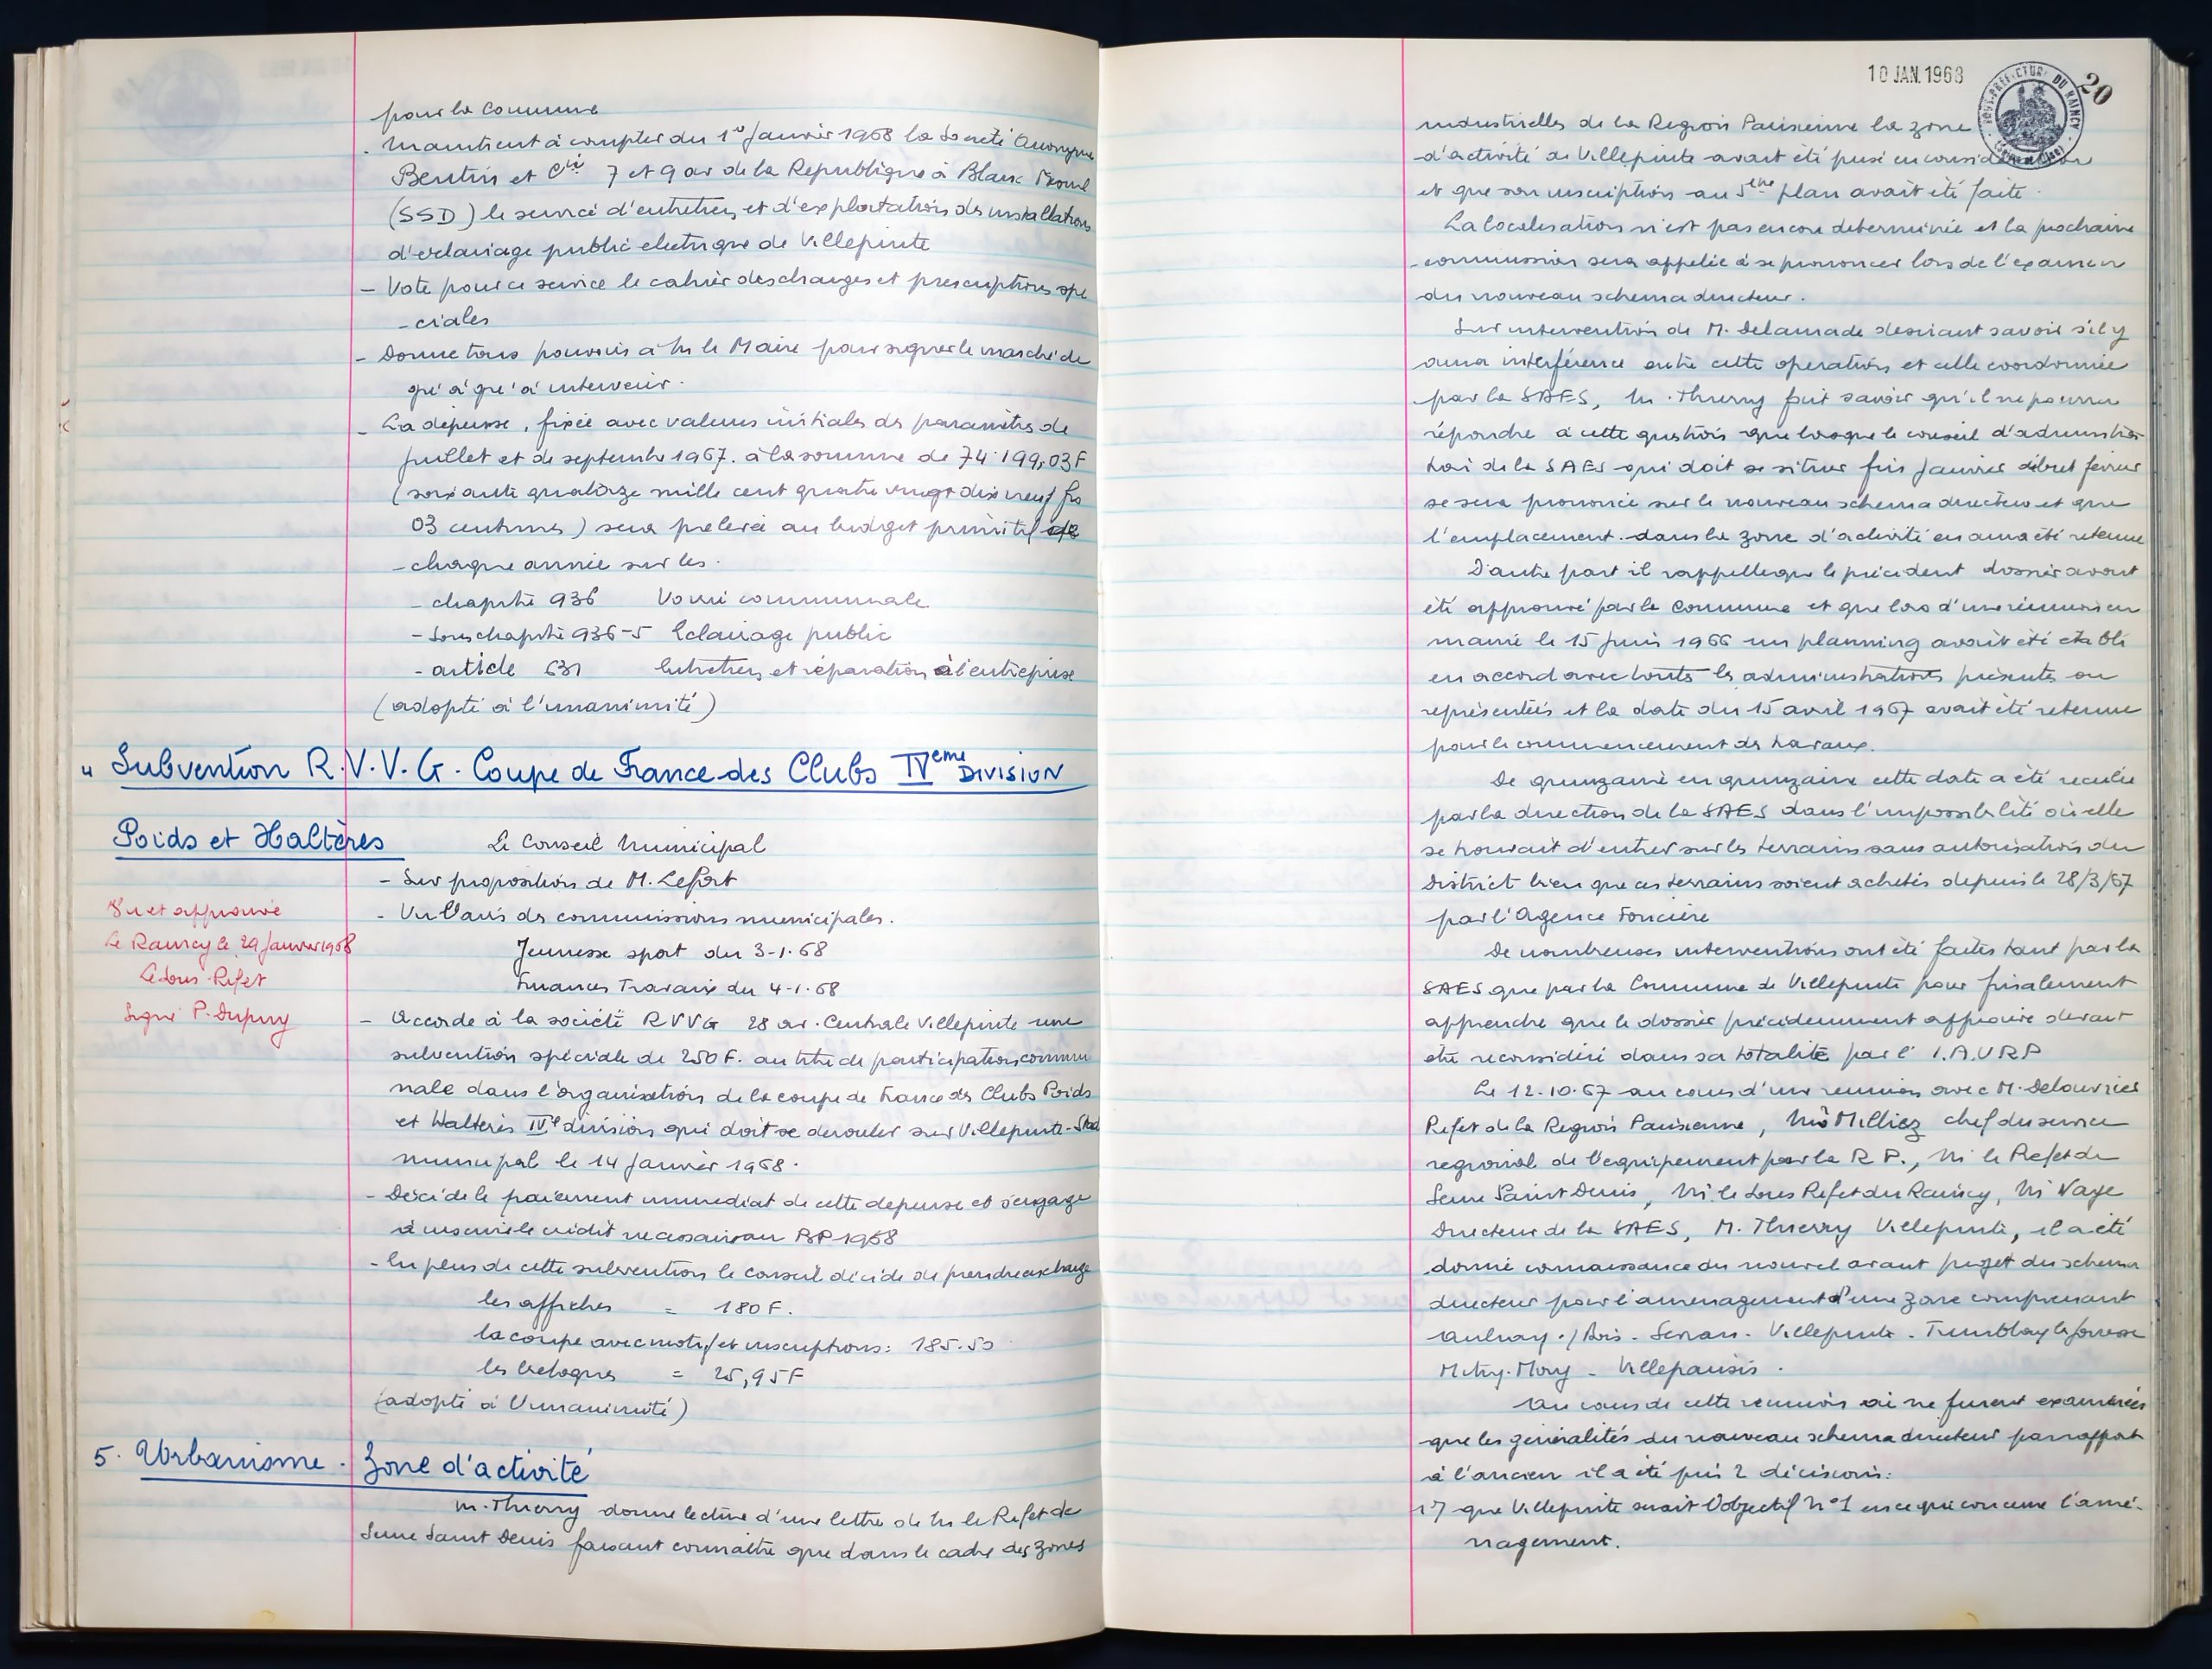 pour la Commune
- Maintient à compter du 1er Janvier 1968 la Société Anonyme
Bentin et Cie 7 et 9 av de la Republique à Blanc Mesnil
(SSD) le service d'entretien et d'exploitation des installations
d'eclairage public electrique de Villepinte
- Vote pour ce service le cahier des charges et prescriptions spe
- ciales
- Donne tous pouvoirs à M le Maire pour signer le marché de
gré à gré à intervenir.
- La dépense, fixée avec valeurs initiales des paramètres de
Juillet et de septembre 1967. à la somme de 74.199,03F
(soixante quatorze mille cent quatre vingt dix neuf frs
03 centimes) sera prelevée au budget primitif de
- chaque année sur les.
- chapitre 936 Voirie communale
- Sous chapitre 936-5 Eclairage public
- article 631 Entretien et réparation à l'entreprise
(adopté à l'unanimité)
" Subvention R.V.V.G. Coupe de France des Clubs IVeme DIVISION
Poids et Haltères
Le Conseil Municipal
- Sur proposition de M. Lefort
- Vu l'avis des commissions municipales.
Jeunesse sport du 3-1-68
Finances Travaux du 4-1-68
Vu et approuvé
Le Raincy le 29 Janvier 1968
Le Sous-Préfet
Signé P. Dupuy
- Accorde à la société RVVG 28 av. Centrale Villepinte une
subvention spéciale de 250F. au titre de participation commu
nale dans l'organisation de la coupe de France des Clubs Poids
et Haltères IVe division qui doit se derouler sur Villepinte-Stade
municipal le 14 Janvier 1968.
- Décide le paiement immediat de cette depense et s'engage
à inscrire le crédit necessaire au BP 1968
- En plus de cette subvention le conseil décide de prendre en charge
les affiches = 180F.
la coupe avec motif et inscriptions: 185.50
les breloques = 25,95F
(adopté à l'unanimité)
5. Urbanisme. Zone d'activité
M. Thierry donne lecture d'une lettre de M le Préfet de
Seine Saint Denis faisant connaître que dans le cadre des zones
10 JAN. 1968
SOUS-PRÉFECTURE DU RAINCY
20
industrielles de la Region Parisienne la zone
d'activité de Villepinte avait été prise en consideration
et que son inscription au 5ème plan avait été faite.
La localisation n'est pas encore determinée et la prochaine
commission sera appelée à se prononcer lors de l'examen
du nouveau schema directeur.
Sur intervention de M. Delamade desirant savoir s'il y
aura interférence entre cette operation et celle coordonnée
par la SAES, M. Thierry fait savoir qu'il ne pourra
répondre à cette question que lorsque le conseil d'administra
tion de la SAES qui doit se situer fin Janvier début fevrier
se sera prononcé sur le nouveau schema directeur et que
l'emplacement dans la zone d'activité en aura été retenue
D'autre part il rappelle que le précédent dossier avait
été approuvé par la Commune et que lors d'une réunion en
mairie le 15 Juin 1966 un planning avait été établi
en accord avec toutes les administrations présentes ou
représentées et la date du 15 avril 1967 avait été retenue
pour le commencement des travaux.
De quinzaine en quinzaine cette date a été reculée
par la direction de la SAES dans l'impossibilité où elle
se trouvait d'entrer sur les terrains sans autorisation du
District bien que ces terrains soient achetés depuis le 28/3/67
par l'Agence Foncière
De nombreuses interventions ont été faites tant par la
SAES que par la Commune de Villepinte pour finalement
apprendre que le dossier précédemment approuvé devait
être reconsidéré dans sa totalité par l' I.A.U.R.P
Le 12-10-67 au cours d'une reunion avec M. Delouvrier
Préfet de la Region Parisienne, Milliez chef du service
regional de l'equipement pour la R.P., M le Préfet de
Seine Saint Denis, M. le Sous Préfet du Raincy, M Vaye
Directeur de la SAES, M. Thierry Villepinte, il a été
donné connaissance du nouvel avant projet du schema
directeur pour l'aménagement d'une zone comprenant
Aulnay s/Bois - Sevran - Villepinte - Tremblay les Gonesse
Mitry-Mory - Villeparisis.
Au cours de cette reunion où ne furent examinées
que les généralités du nouveau schema directeur par rapport
à l'ancien il a été pris 2 décisions:
1°) que Villepinte serait l'objectif n°1 en ce qui concerne l'amé-
nagement.